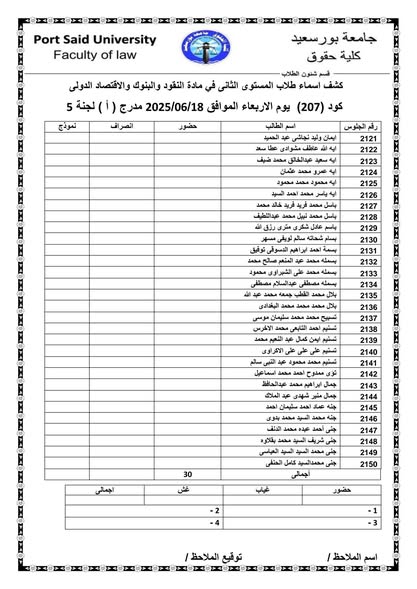 Port Said University
Faculty of law
جامعة بورسعيد
كلية حقوق
قسم شئون الطلاب
كشف اسماء طلاب المستوى الثانى في مادة النقود والبنوك والاقتصاد الدولى
كود (207) يوم الاربعاء الموافق 2025/06/18 مدرج ( أ ) لجنة 5
رقم الجلوس اسم الطالب حضور انصراف نموذج
2121 ايمان وليد نجاشى عبد الحميد
2122 ايه الله عاطف مشوادى عطا سعد
2123 ايه سعيد عبدالخالق محمد ضيف
2124 ايه عمرو محمد عثمان
2125 ايه محمود محمد محمود
2126 ايه ياسر محمد احمد السيد
2127 باسل محمد فريد فريد خالد محمد
2128 باسل محمد نبيل محمد عبداللطيف
2129 باسم عادل شكرى مترى رزق الله
2130 بسام شحاته سالم لويفى مسهر
2131 بسمة احمد ابراهيم الدسوقى توفيق
2132 بسمله محمد عبد المنعم صالح محمد
2133 بسمله محمد على الشبراوى محمود
2134 بسمله مصطفى عبدالسلام مصطفى
2135 بلال محمد القطب جمعه محمد عبد الله
2136 بلال محمد محمد محمد البغدادى
2137 تسبيح محمد محمد سليمان موسى
2138 تسنيم احمد التابعى محمد الاخرس
2139 تسنيم ايمن كمال عبد النعيم محمد
2140 تسنيم على على على الاكراوى
2141 تسنيم محمد محمود عبد النبى سالم
2142 تؤى ممدوح احمد محمد اسماعيل
2143 جمال ابراهيم محمد عبدالحافظ
2144 جمال منير شهدى عبد الملاك
2145 جنه عماد احمد سليمان احمد
2146 جنه محمد السيد محمد بدوى
2147 جنى أحمد عبده محمد الدنف
2148 جنى شريف السيد محمد بقلاوه
2149 جنى محمد السيد السيد العباسى
2150 جنى محمدالسيد كامل الحنفى
أجمالى 30
حضور غياب غش اجمالى
1 - 2 -
3 - 4 -
اسم الملاحظ / توقيع الملاحظ /